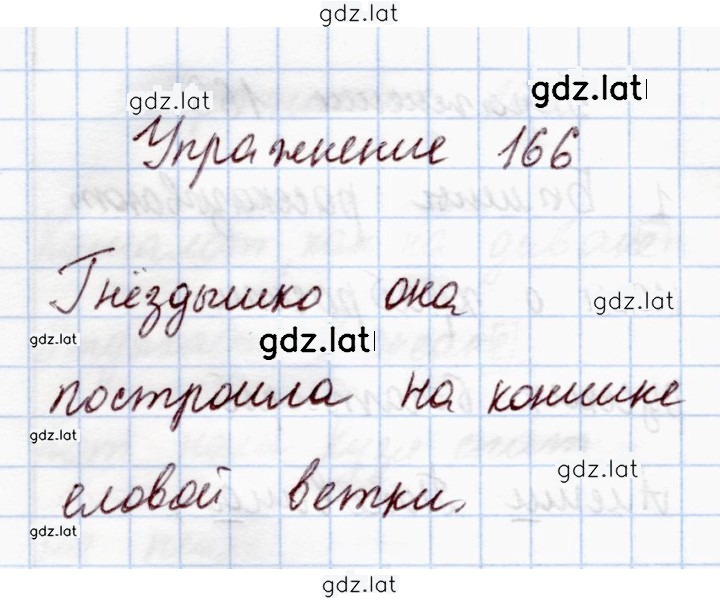 gdz.lat
gdz.lat
gdz.lat
Упражнение 166
Гнёздышко она
gdz.lat
gdz.lat
gdz.lat
построила на кончике
gdz.lat
gdz.lat
еловой ветки.
gdz.lat
gdz.lat